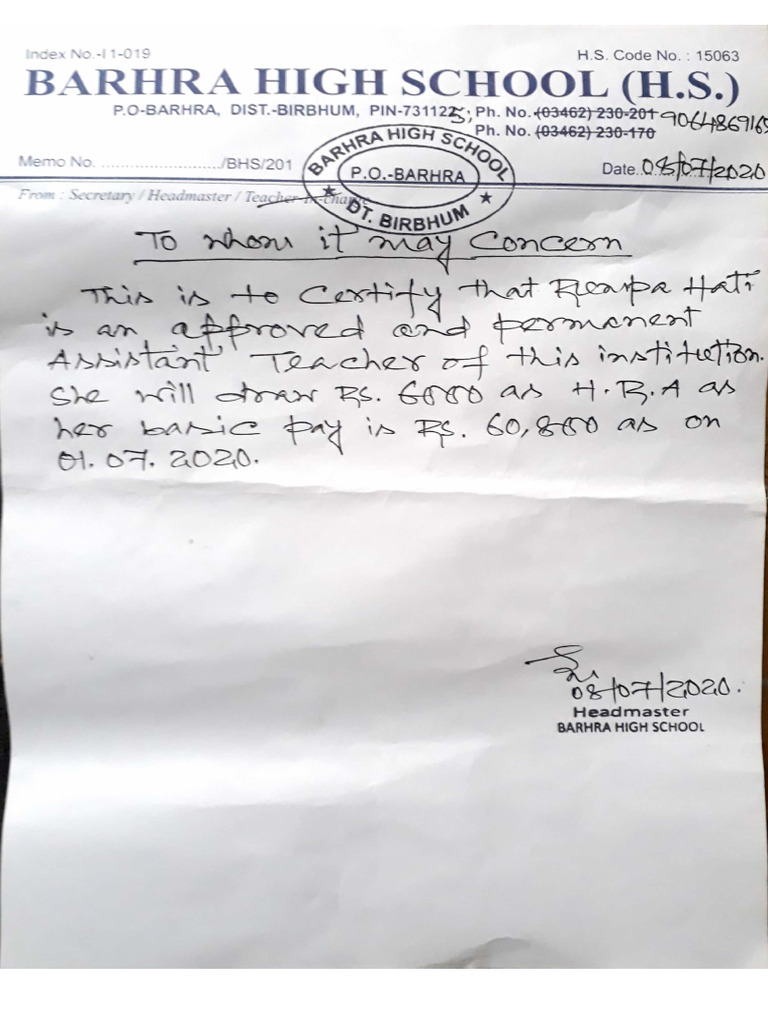 Index No.-I1-019 H.S. Code No. : 15063
BARHRA HIGH SCHOOL (H.S.)
P.O-BARHRA, DIST.-BIRBHUM, PIN-731125, Ph. No. (03462) 230-201
Ph. No. (03462) 230-170
BARHRA HIGH SCHOOL
P.O.-BARHRA
DT. BIRBHUM
Memo No. ............................/BHS/201 Date..08/07/2020
From : Secretary / Headmaster / Teacher-in-charge
To whom it may Concern
This is to Certify that Hati
is an approved and permanent
Assistant Teacher of this institution.
She will draw Rs. 6000 as H.R.A as
her basic pay is Rs. 60,800 as on
01.07.2020.
08/07/2020.
Headmaster
BARHRA HIGH SCHOOL